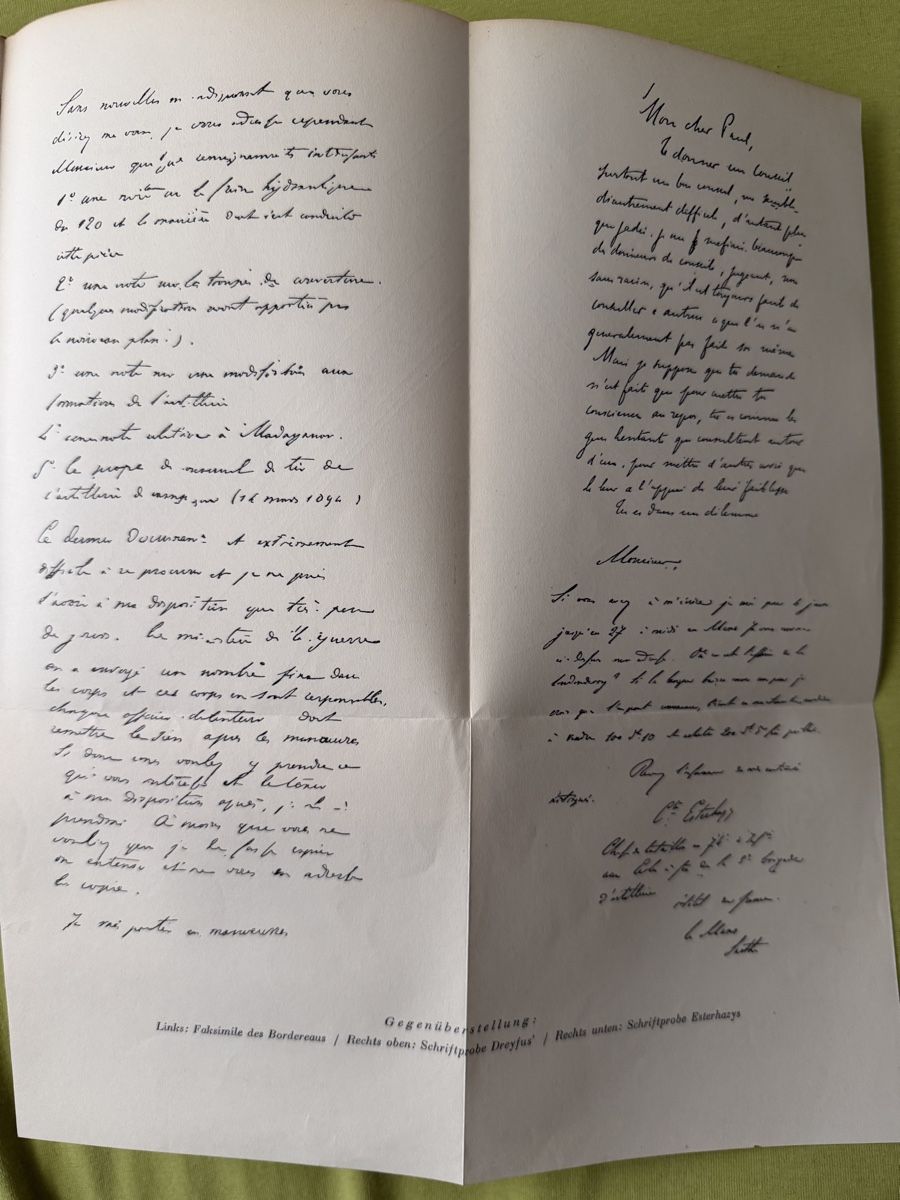 Sans nouvelles m'indiquant que vous
désirez me voir, je vous adresse cependant
Monsieur quelques renseignements intéressants
1° une note sur le frein hydraulique
du 120 et la manière dont s'est conduite
cette pièce
2° une note sur les troupes de couverture.
(quelques modifications seront apportées par
le nouveau plan.).
3° une note sur une modification aux
formations de l'artillerie
4° une note relative à Madagascar.
5° le projet de manuel de tir de
l'artillerie de campagne (14 mars 1894)
Ce dernier Document est extrêmement
difficile à se procurer et je ne puis
l'avoir à ma disposition que très peu
de jours. Le ministère de la guerre
en a envoyé un nombre fixe dans
les corps et ces corps en sont responsables,
chaque officier détenteur doit
remettre le sien après les manœuvres
Si donc vous voulez y prendre ce
qui vous intéresse et le tenir
à ma disposition après, je le
prendrai. À moins que vous ne
vouliez que je le fasse copier
in extenso et ne vous en adresse
la copie.
Je vais partir en manœuvres
Mon cher Paul,
Te donner un conseil
surtout un bon conseil, me semble
diantrement difficile, d'autant plus
que jadis je me méfiais beaucoup
des donneurs de conseils, jugeant, non
sans raison, qu'il est toujours facile de
conseiller à autrui ce que l'on n'a
généralement pas fait soi même
Mais je suppose que ta demande
n'est faite que pour mettre ta
conscience au repos, tu es comme les
gens hésitants qui consultent autour
d'eux, pour mettre d'autres avis que
le leur à l'appui de leur faiblesse
Tu es dans un dilemme
Monsieur,
Si vous avez à m'écrire je
jusqu'au 27 à midi au Mans
ci-dessus
à 100 10 200 5
Cte Esterhazy
Chef de bataillon au 74e
d'artillerie
le Mans
Sarthe
Gegenüberstellung:
Links: Faksimile des Bordereaus / Rechts oben: Schriftprobe Dreyfus' / Rechts unten: Schriftprobe Esterhazys